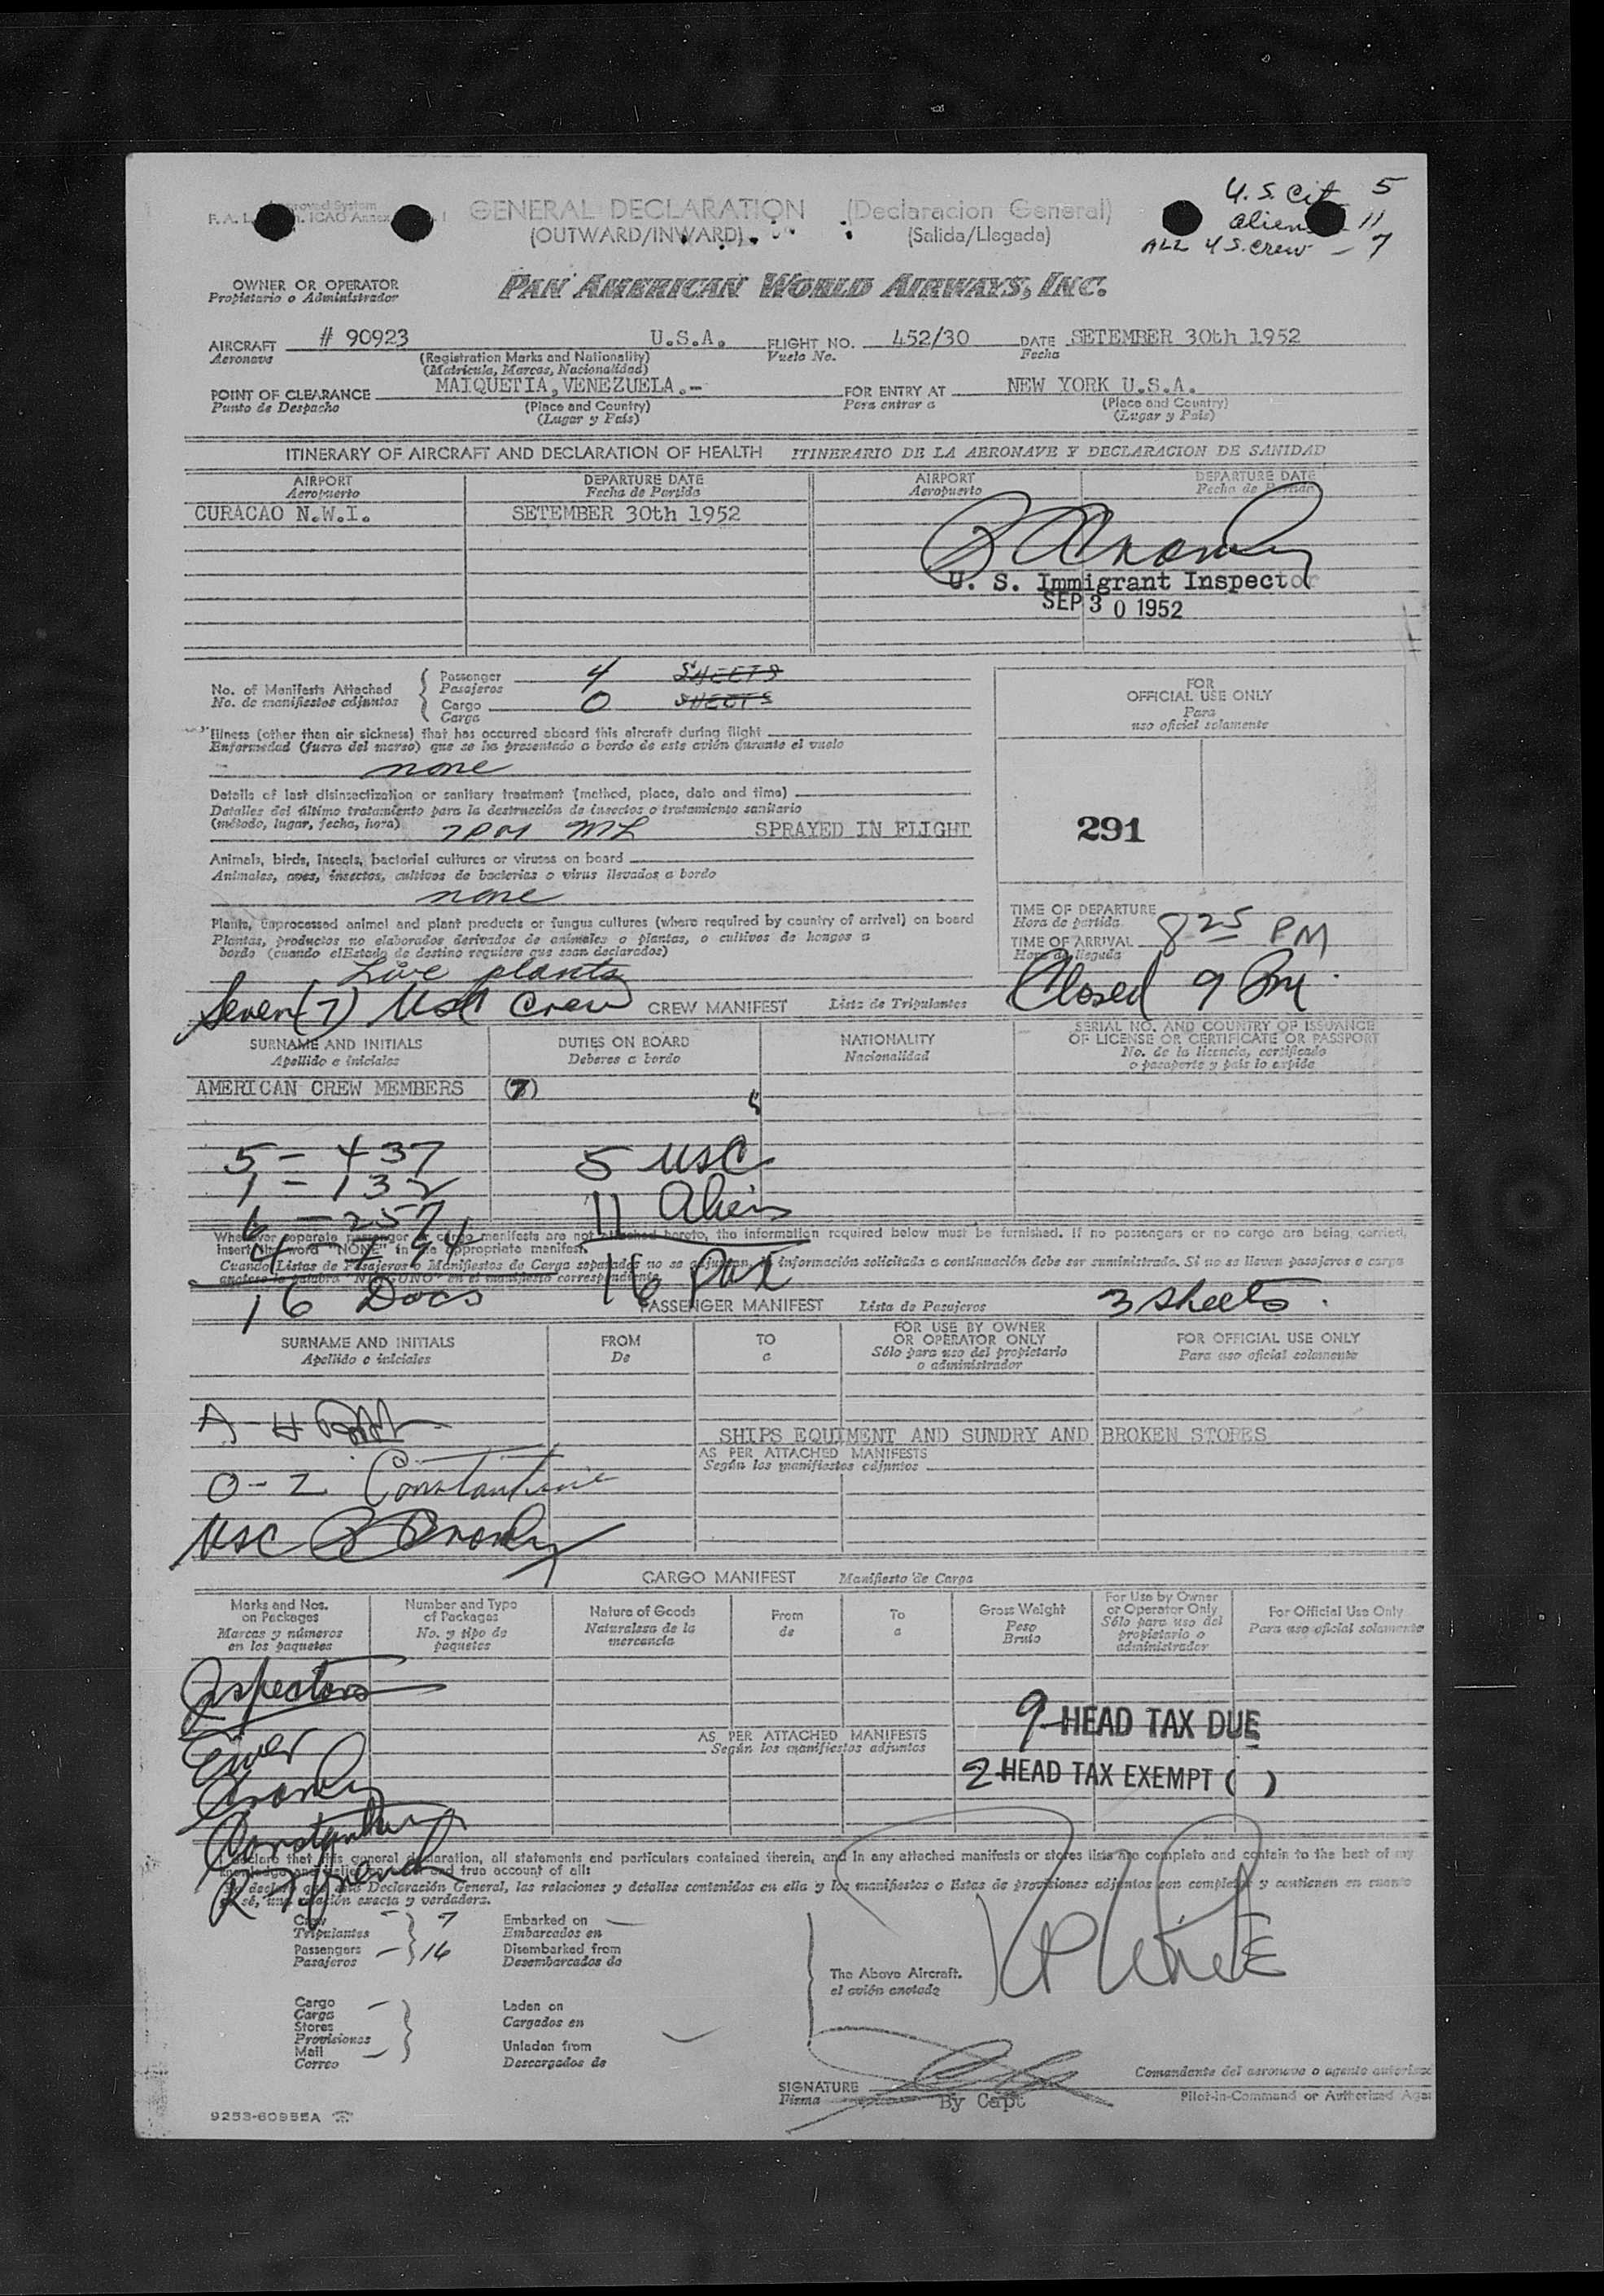 U.S. Cit 5
GENERAL DECLARATION (Declaracion General)
alien 11
(OUTWARD/INWARD) (Salida/Llegada)
ALL U.S. crew - 7
OWNER OR OPERATOR
Propietario o Administrador
PAN AMERICAN WORLD AIRWAYS, INC.
AIRCRAFT # 90923 U.S.A. FLIGHT NO. 452/30 DATE SETEMBER 30th 1952
Aeronave (Registration Marks and Nationality) Vuelo No. Fecha
(Matricula, Marcas, Nacionalidad)
POINT OF CLEARANCE MAIQUETIA, VENEZUELA.- FOR ENTRY AT NEW YORK U.S.A.
Punto de Despacho (Place and Country) Para entrar a (Place and Country)
(Lugar y País) (Lugar y País)
ITINERARY OF AIRCRAFT AND DECLARATION OF HEALTH ITINERARIO DE LA AERONAVE Y DECLARACION DE SANIDAD
AIRPORT DEPARTURE DATE AIRPORT DEPARTURE DATE
Aeropuerto Fecha de Partida Aeropuerto Fecha de Partida
CURACAO N.W.I. SETEMBER 30th 1952
U. S. Immigrant Inspector
SEP 3 0 1952
Passenger 4 SHEETS
No. of Manifests Attached Pasajeros
No. de manifiestos adjuntos Cargo 0 SHEETS
Carga
FOR
OFFICIAL USE ONLY
Para
uso oficial solamente
Illness (other than air sickness) that has occurred aboard this aircraft during flight
Enfermedad (fuera del mareo) que se ha presentado a bordo de este avión durante el vuelo
none
Details of last disinsectization or sanitary treatment (method, place, date and time)
Detalles del último tratamiento para la destrucción de insectos o tratamiento sanitario
(método, lugar, fecha, hora) 7PM SPRAYED IN FLIGHT
291
Animals, birds, insects, bacterial cultures or viruses on board
Animales, aves, insectos, cultivos de bacterias o virus llevados a bordo
none
Plants, unprocessed animal and plant products or fungus cultures (where required by country of arrival) on board
Plantas, productos no elaborados derivados de animales o plantas, o cultivos de hongos a
bordo (cuando el Estado de destino requiere que sean declarados)
Live plants
TIME OF DEPARTURE
Hora de partida 8 25 PM
TIME OF ARRIVAL
Hora de llegada
Closed 9 Pm.
Seven (7) USC Crew CREW MANIFEST Lista de Tripulantes
SURNAME AND INITIALS DUTIES ON BOARD NATIONALITY SERIAL NO. AND COUNTRY OF ISSUANCE
Apellido e iniciales Deberes a bordo Nacionalidad OF LICENSE OR CERTIFICATE OR PASSPORT
No. de la licencia, certificado
o pasaporte y país lo expide
AMERICAN CREW MEMBERS (7)
5 - 437 5 USC
1 - 132 11 Aliens
6 - 257
Whenever separate passenger or cargo manifests are not attached hereto, the information required below must be furnished. If no passengers or no cargo are being carried,
insert the word "NONE" in the appropriate manifest.
Cuando Listas de Pasajeros o Manifiestos de Carga separados no se adjuntan, la información solicitada a continuación debe ser suministrada. Si no se lleven pasajeros o carga
anotese la palabra "NINGUNO" en el manifiesto correspondiente.
16 Docs 16 Pax
PASSENGER MANIFEST Lista de Pasajeros 3 sheets.
SURNAME AND INITIALS FROM TO FOR USE BY OWNER OR OPERATOR ONLY FOR OFFICIAL USE ONLY
Apellido e iniciales De a Sólo para uso del propietario o administrador Para uso oficial solamente
SHIPS EQUIMENT AND SUNDRY AND BROKEN STORES
AS PER ATTACHED MANIFESTS
Según los manifiestos adjuntos
0-2 Constantine
USC
CARGO MANIFEST Manifiesto de Carga
Marks and Nos. on Packages Number and Type of Packages Nature of Goods From To Gross Weight For Use by Owner or Operator Only For Official Use Only
Marcas y números en los paquetes No. y tipo de paquetes Naturaleza de la mercancia de a Peso Bruto Sólo para uso del propietario o administrador Para uso oficial solamente
Inspectors
9 HEAD TAX DUE
AS PER ATTACHED MANIFESTS
Según los manifiestos adjuntos
2 HEAD TAX EXEMPT ( )
I declare that this general declaration, all statements and particulars contained therein, and in any attached manifests or stores lists are complete and contain to the best of my
knowledge and belief and true account of all:
Yo declaro que esta Declaración General, las relaciones y detalles contenidos en ella y los manifiestos o listas de provisiones adjuntos son completos y contienen en cuanto
sé, una relación exacta y verdadera.
Crew - 7 Embarked on
Tripulantes Embarcados en
Passengers - 16 Disembarked from
Pasajeros Desembarcados de
The Above Aircraft.
el avión anotado
Cargo Laden on
Carga Cargados en
Stores
Provisiones Unladen from
Mail Descargados de
Correo
Comandante del aeronave o agente autorizado
SIGNATURE
Firma By Capt Pilot-in-Command or Authorized Agen
9253-60955A